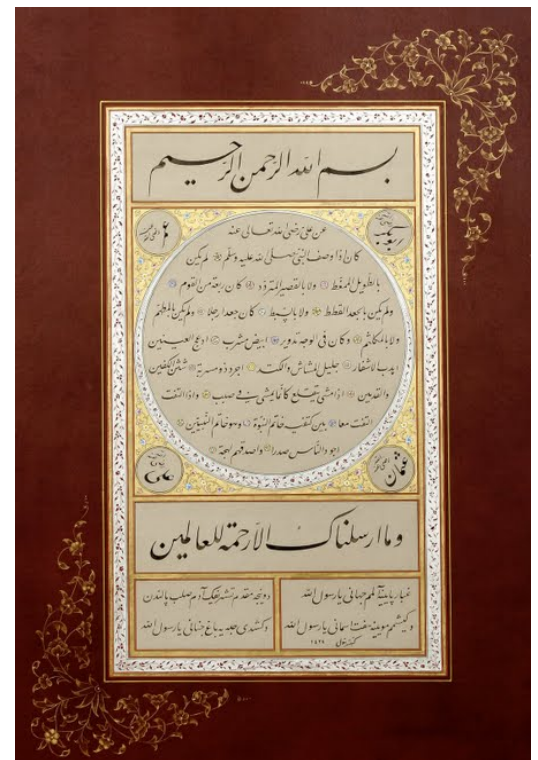 بسم الله الرَّحمن الرَّحيم
ابو بكر
عمر
عن علي رضي الله تعالى عنه
كان اذا وصف النبي صلى الله عليه وسلم لم يكن
بالطويل الممغط ولا بالقصير المتردد كان ربعة من القوم
ولم يكن بالجعد القطط ولا بالسبط كان جعدا رجلا ولم يكن بالمطهم
ولا بالمكلثم وكان في الوجه تدوير ابيض مشرب ادعج العينين
اهدب الاشفار جليل المشاش والكتد اجرد ذو مسربة شثن الكفين
والقدمين اذا مشى تقلع كانما يمشي في صبب واذا التفت
التفت معا بين كتفيه خاتم النبوة وهو خاتم النبيين
اجود الناس صدرا واصدقهم لهجة
عثمان
علي
وما ارسلناك الا رحمة للعالمين
يا رسول الله
يا رسول الله
١٤٢٨
يا رسول الله